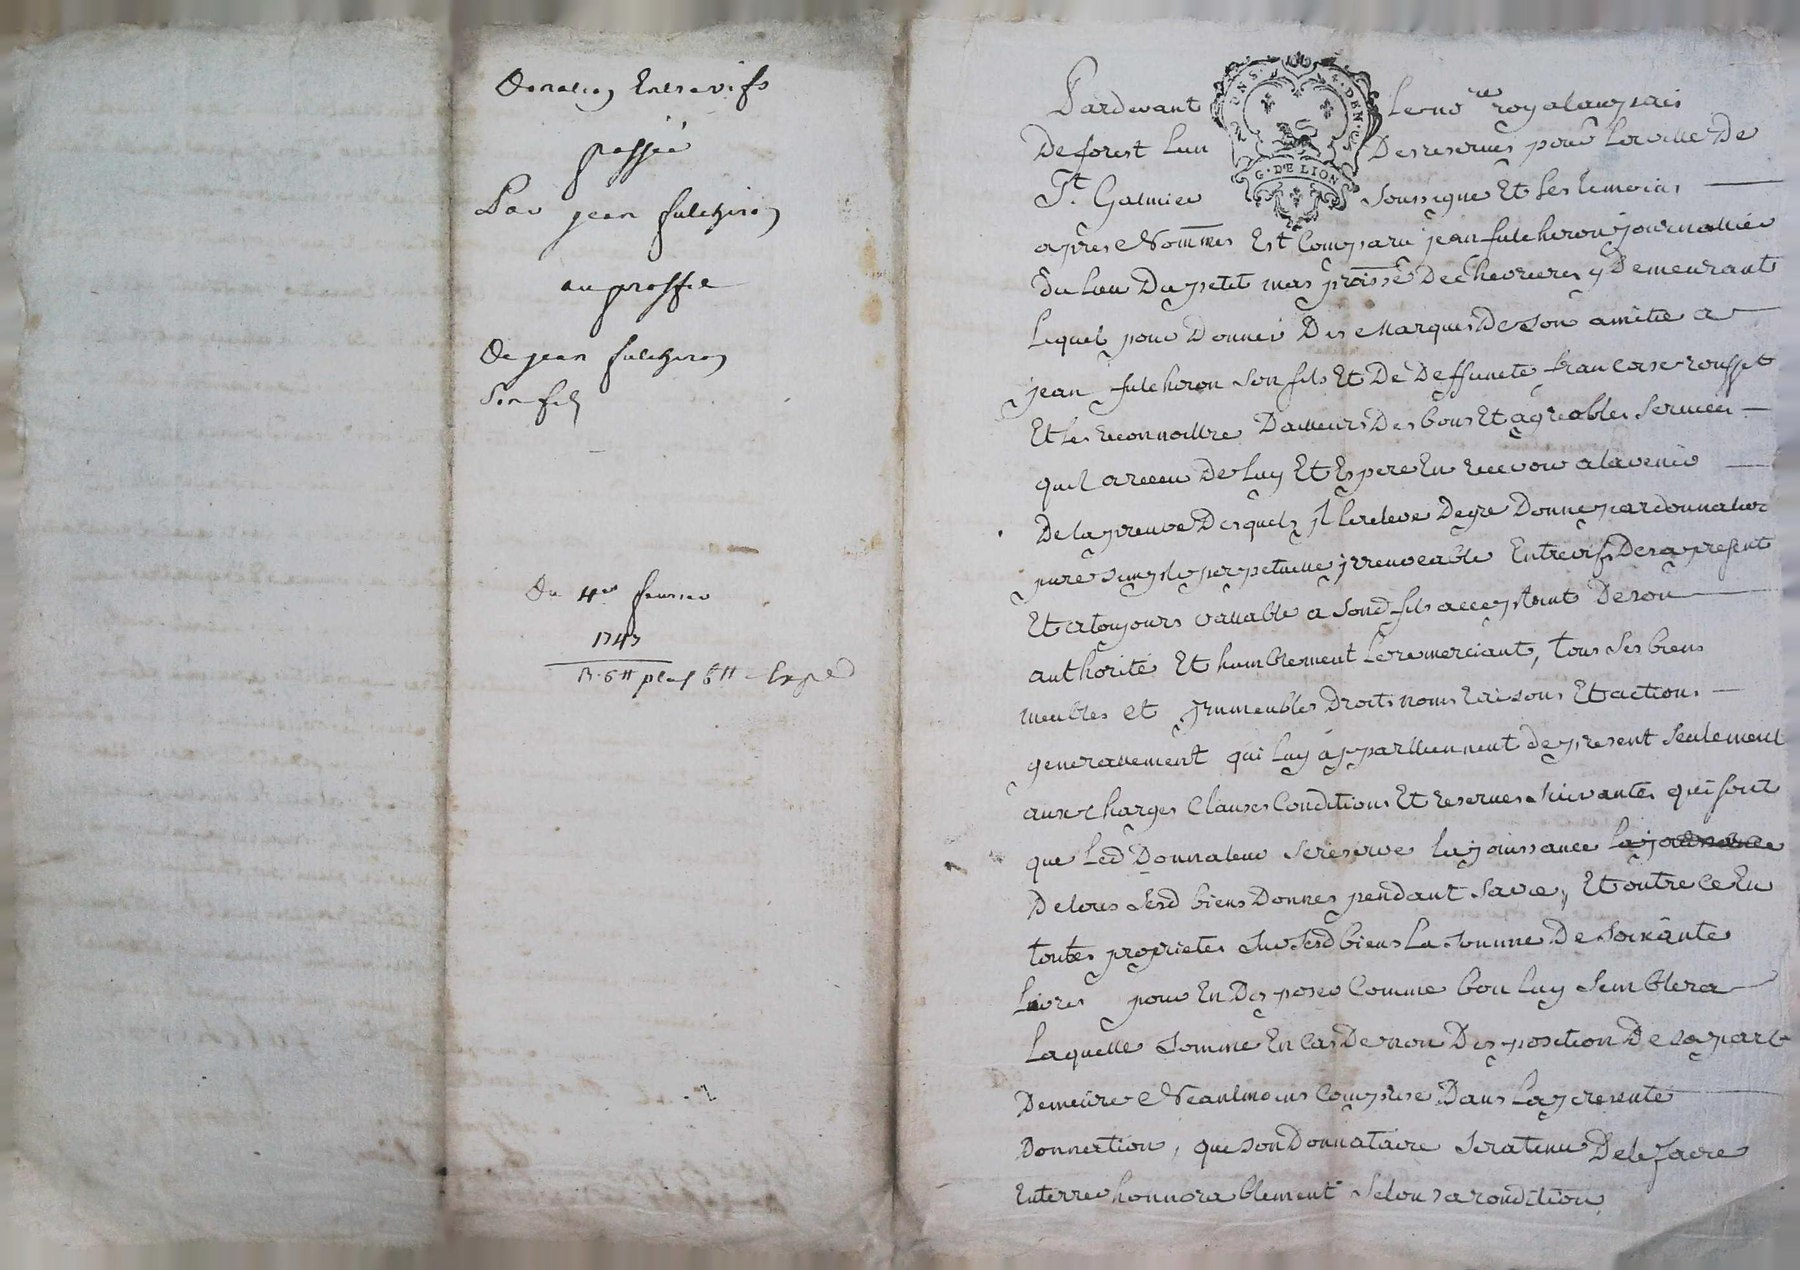 Donation Entrevifs
passéé
Par jean fulchiron
au proffit
De jean fulchiron
Son fils
Du 4er feuvrier
1747
Pardevant Le no.re royal au pais
De forest Lun Des reservés pour La ville De
St. Galmier Soussigne Et Les temoins
UN S. 4. DEN.ers
G. DE LION
apres Nommes Est Comparu jean fulcheron journallier
Du lieu Du petit mas proisse De chevrieres y Demeurant
Lequel pour Donner Des Marques De son amitie a
jean fulcheron son fils Et De Deffuncte francoise rousset
Et Les reconnoittre Dailleurs Des bons Et agreables Services
quil a receu De Luy Et Espere En recevoir alavenir
De la preuve Desquelz jl Le releve De gre Donne par donnation
pure simple perpetuelle jrrevocable Entrevifs Des a present
Et atoujours vallable a Sond fils acceptant De son
authorité Et humblement Le remerciant, tous Ses biens
meubles et jmmeubles Droits noms raisons Et actions
generallement qui Luy appartiennent de present Seulement
aux charges Clauses Conditions Et reserves suivantes qui sont
que Led Donnateur Se reserve La jouissance
De tous Sesd biens Donnes pendant Sa vie, Et outre ce En
toutes proprietes Sur Sesd biens La Somme De Soixante
Livres pour En Disposer Comme bon Luy Semblera
Laquelle Somme En cas De non Disposition De sa part
Demeure Neantmoins Comprise Dans La presente
Donnation, que son Donnataire Sera tenu De le faire
Enterrer honnorablement Selon sa condition,